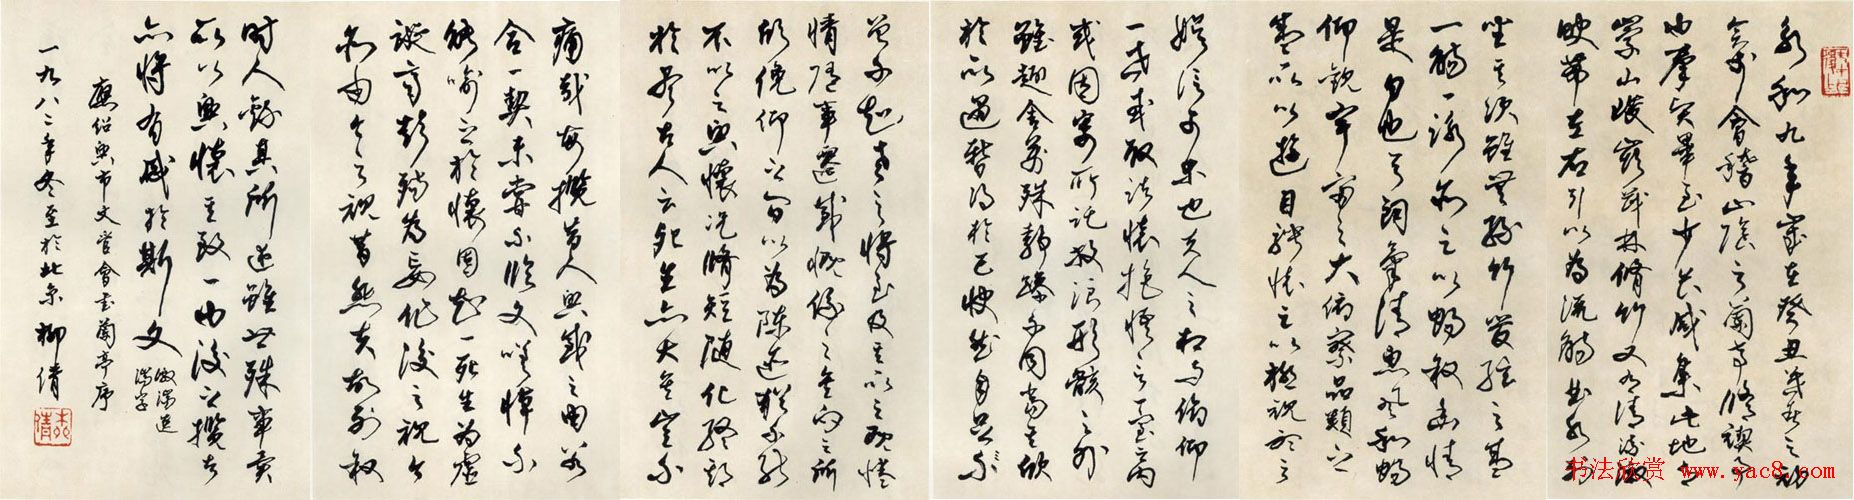 永和九年歲在癸丑暮春之初
會於會稽山陰之蘭亭脩禊事
也羣賢畢至少長咸集此地有
崇山峻嶺茂林脩竹又有清流激
映帶左右引以為流觴曲水列
坐其次雖無絲竹管弦之盛
一觴一詠亦足以暢敘幽情
是日也天朗氣清惠風和暢
仰觀宇宙之大俯察品類之
盛所以遊目騁懷足以極視聽之
娛信可樂也夫人之相與俯仰
一世或取諸懷抱悟言一室之內
或因寄所託放浪形骸之外
雖趣舍萬殊靜躁不同當其欣
於所遇暫得於己快然自足不
曾不知老之將至及其所之既惓
情隨事遷感慨係之矣向之所
欣俛仰之間以為陳迹猶不能
不以之興懷況脩短隨化終期
於盡古人云死生亦大矣豈不
痛哉每攬昔人興感之由若
合一契未嘗不臨文嗟悼不
能喻之於懷固知一死生為虛
誕齊彭殤為妄作後之視今
亦由今之視昔悲夫故列敘
時人錄其所述雖世殊事異
所以興懷其致一也後之攬者
亦將有感於斯文
湍字
應紹興市文管會書蘭亭序
一九八二年冬至於北京柳倩
书法欣赏 www.yac8.com